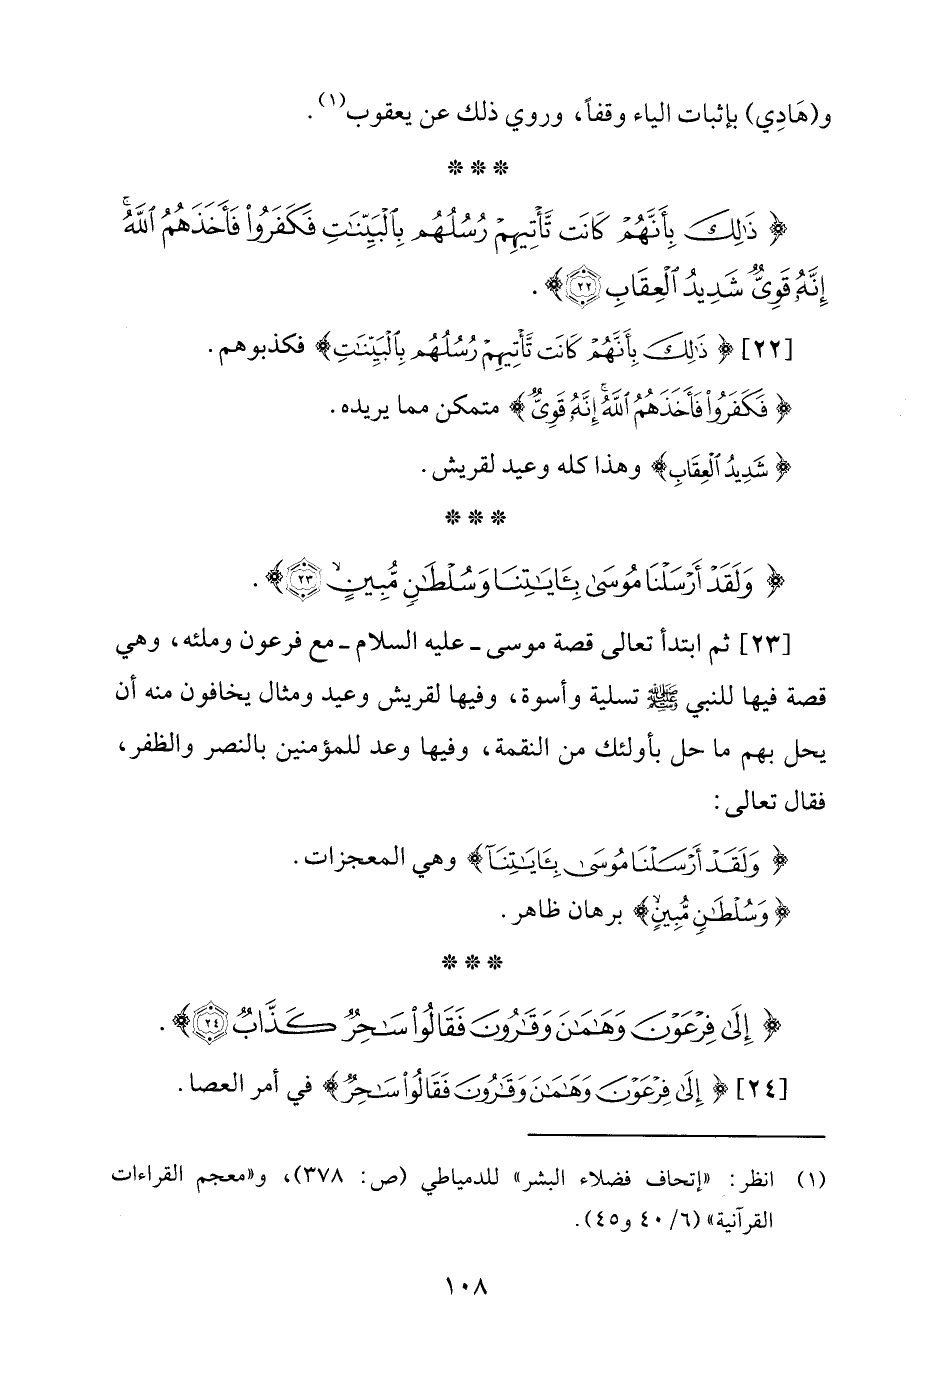 و(هَادِي) بإثبات الياء وقفاً، وروي ذلك عن يعقوب(١).
***
﴿ ذَٰلِكَ بِأَنَّهُمْ كَانَت تَّأْتِيهِمْ رُسُلُهُم بِالْبَيِّنَٰتِ فَكَفَرُوا۟ فَأَخَذَهُمُ ٱللَّهُ ۚ
إِنَّهُۥ قَوِىٌّ شَدِيدُ ٱلْعِقَابِ ٢٢﴾.
[٢٢] ﴿ ذَٰلِكَ بِأَنَّهُمْ كَانَت تَّأْتِيهِمْ رُسُلُهُم بِٱلْبَيِّنَٰتِ﴾ فكذبوهم.
﴿ فَكَفَرُوا۟ فَأَخَذَهُمُ ٱللَّهُ ۚ إِنَّهُۥ قَوِىٌّ﴾ متمكن مما يريده.
﴿ شَدِيدُ ٱلْعِقَابِ﴾ وهذا كله وعيد لقريش.
***
﴿ وَلَقَدْ أَرْسَلْنَا مُوسَىٰ بِـَٔايَٰتِنَا وَسُلْطَٰنٍ مُّبِينٍ ۙ ٢٣﴾.
[٢٣] ثم ابتدأ تعالى قصة موسى - عليه السلام - مع فرعون وملئه، وهي
قصة فيها للنبي ﷺ تسلية وأسوة، وفيها لقريش وعيد ومثال يخافون منه أن
يحل بهم ما حل بأولئك من النقمة، وفيها وعد للمؤمنين بالنصر والظفر،
فقال تعالى:
﴿ وَلَقَدْ أَرْسَلْنَا مُوسَىٰ بِـَٔايَٰتِنَآ﴾ وهي المعجزات.
﴿ وَسُلْطَٰنٍ مُّبِينٍ ۙ﴾ برهان ظاهر.
***
﴿ إِلَىٰ فِرْعَوْنَ وَهَٰمَٰنَ وَقَٰرُونَ فَقَالُوا۟ سَٰحِرٌ كَذَّابٌ ٢٤﴾.
[٢٤] ﴿ إِلَىٰ فِرْعَوْنَ وَهَٰمَٰنَ وَقَٰرُونَ فَقَالُوا۟ سَٰحِرٌ﴾ في أمر العصا.
(١) انظر: «إتحاف فضلاء البشر» للدمياطي (ص: ٣٧٨)، و«معجم القراءات
القرآنية» (٦/ ٤٠ و٤٥).
١٠٨